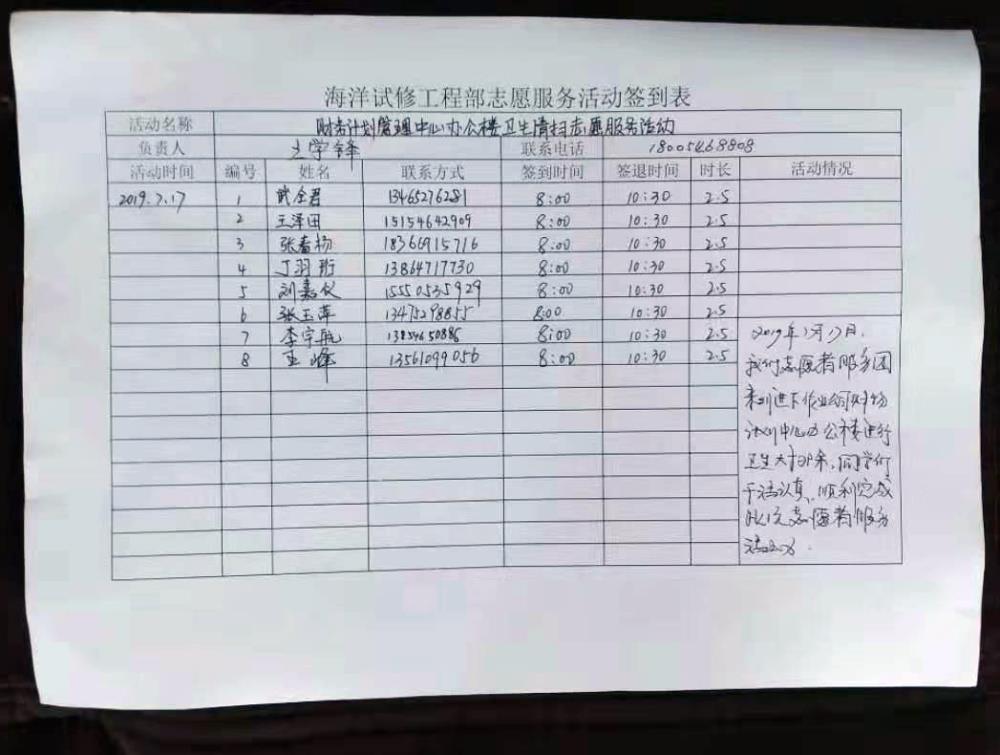 海洋试修工程部志愿服务活动签到表
活动名称 财务计划管理中心办公楼卫生清扫志愿服务活动
负责人 学锋 联系电话 18005468808
活动时间 编号 姓名 联系方式 签到时间 签退时间 时长 活动情况
2019.7.17 1 武全君 13465276281 8:00 10:30 2.5
2 王泽田 15154642909 8:00 10:30 2.5
3 张春杨 18366915716 8:00 10:30 2.5
4 丁羽珩 13864717730 8:00 10:30 2.5
5 刘嘉仪 15550535929 8:00 10:30 2.5
6 张玉萍 13475298855 8:00 10:30 2.5
7 李宇航 13854650886 8:00 10:30 2.5
8 峰 13561099056 8:00 10:30 2.5
2019年7月17日,
我们志愿者服务团
来到井下作业公司财务
计划中心办公楼进行
卫生大扫除,同学们
干活认真,顺利完成
此次志愿者服务
活动